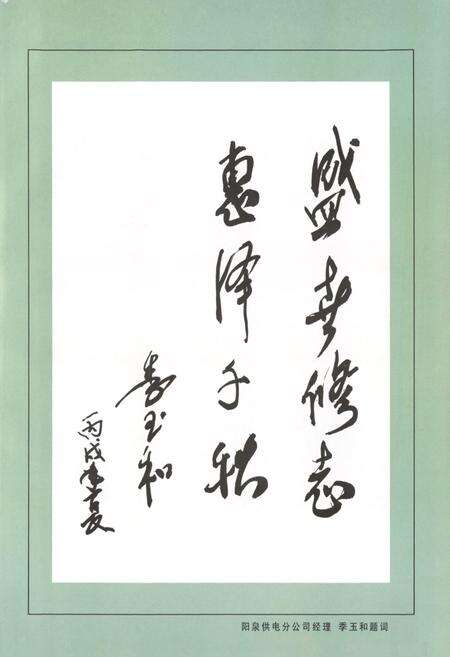 盛世修志
惠泽千秋
季玉和
丙戌年首夏
阳泉供电分公司经理 季玉和题词